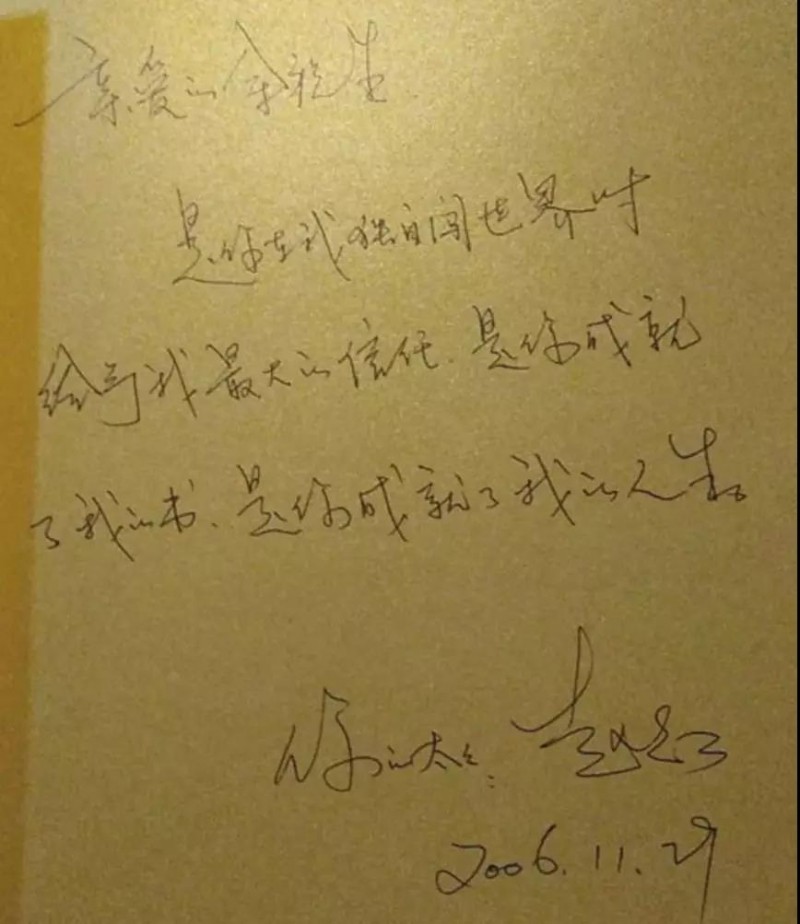 亲爱的余
是你在我独自闯世界时
给予我最大的信任、是你成就
了我的书、是你成就了我的人生。
你的太太: 赵红
2006.11.29